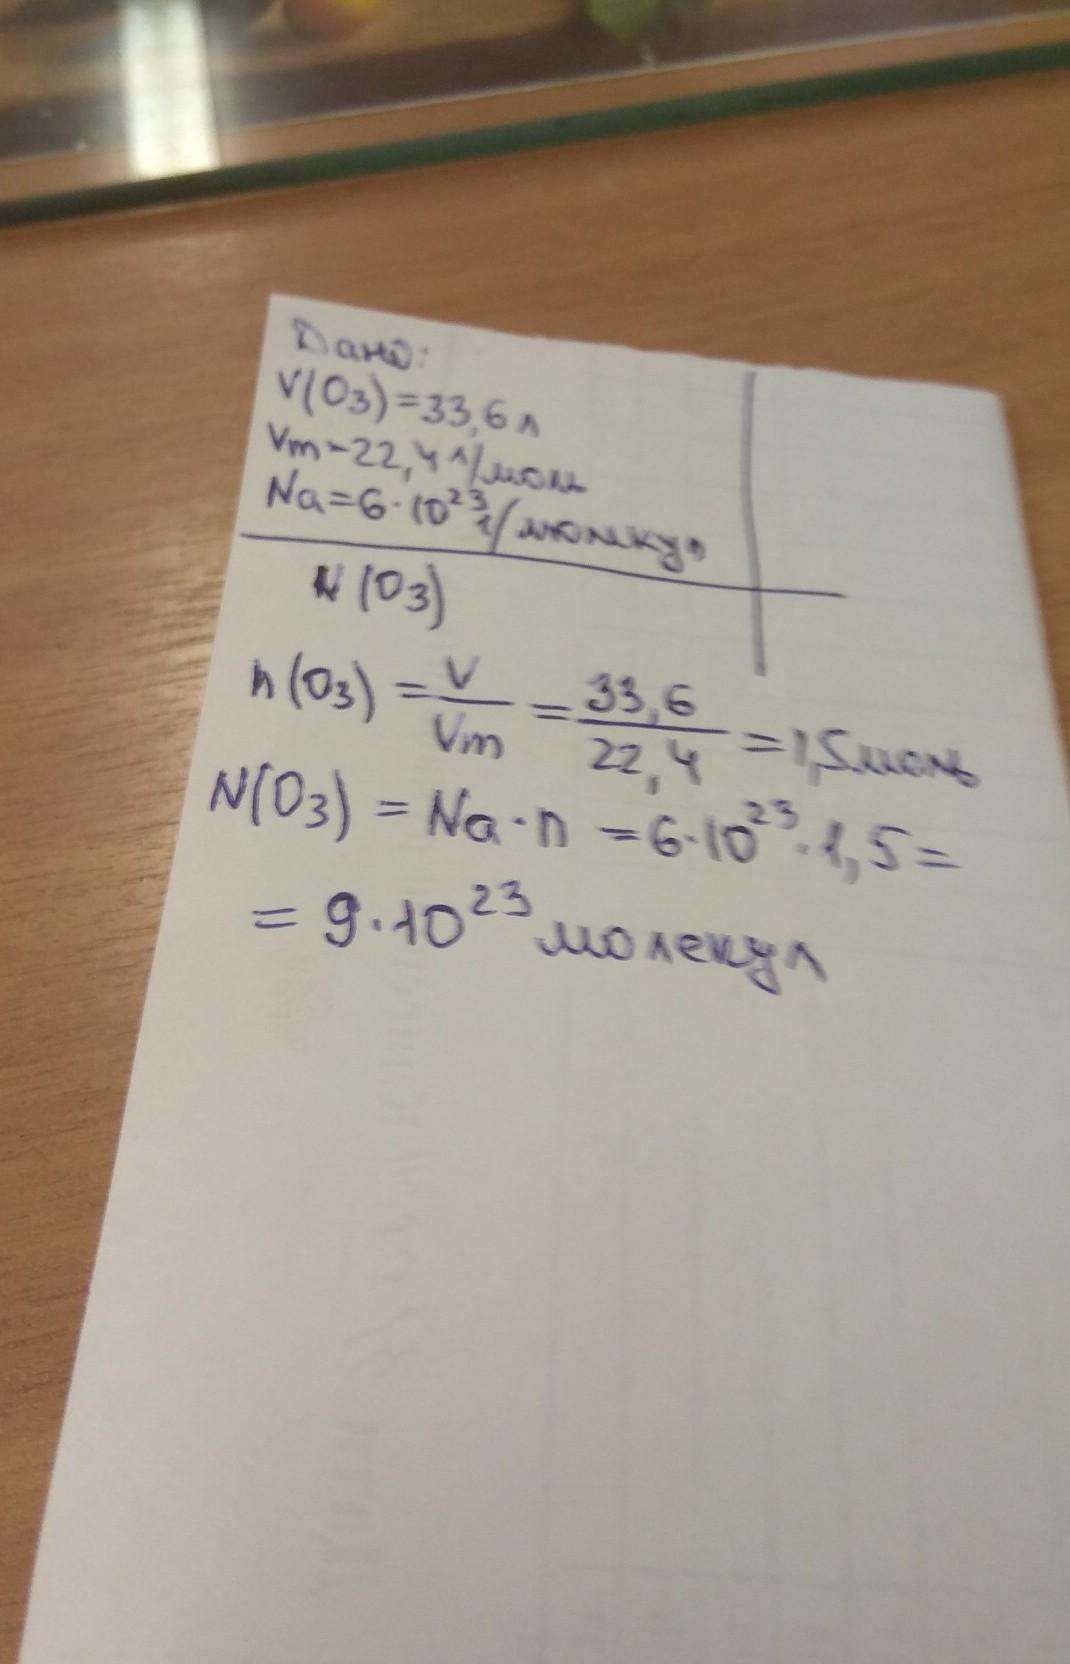 Дано:
V(O3)=33,6л
Vm-22,4л/моль
Na=6·10²³ 1/молекул
N(O3)
n(O3) = V/Vm = 33,6/22,4 = 1,5моль
N(O3) = Na·n = 6·10²³·1,5=
= 9·10²³ молекул